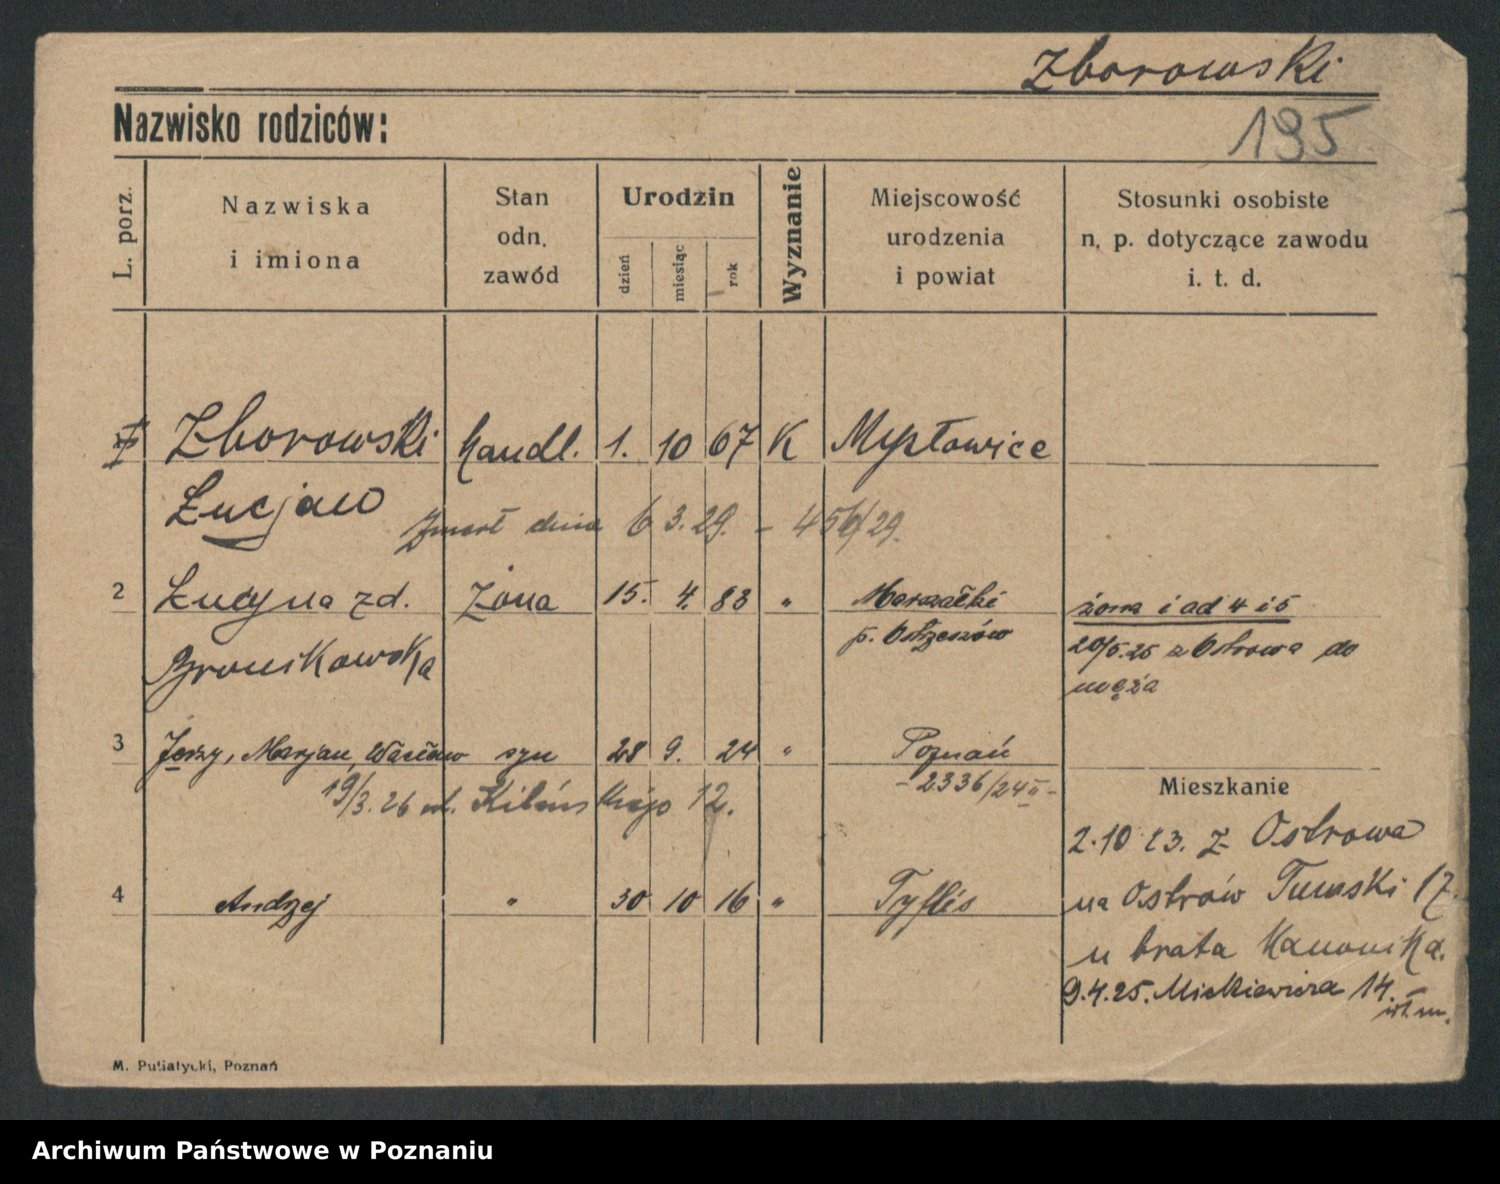 Zborowski
Nazwisko rodziców:
195
L. porz.
Nazwiska
i imiona
Stan
odn.
zawód
Urodzin
dzień
miesiąc
rok
Wyznanie
Miejscowość
urodzenia
i powiat
Stosunki osobiste
n. p. dotyczące zawodu
i. t. d.
Zborowski handl. 1. 10 67 K Mysłowice
Łucjan
Zmarł dnia 6 3.29. - 456/29.
2 Łucyna zd. Żona 15. 4. 83 " Marszałki
p. Ostrzeszów
Bronikowska
żona i ad 4 i 5
20/5.25 z Ostrowa do
męża
3 Jerzy, Marjan, Wacław syn 28 9. 24 " Poznań
- 2336/24 II -
19/3.26 ul. Kilińskiego 12.
4 Andrzej " 30 10 16 " Tyflis
Mieszkanie
2.10 23. z Ostrowa
na Ostrów Tumski 17.
u brata Kanonika.
9.4.25. Mickiewicza 14.
wł. m.
M. Putiatycki, Poznań
Archiwum Państwowe w Poznaniu